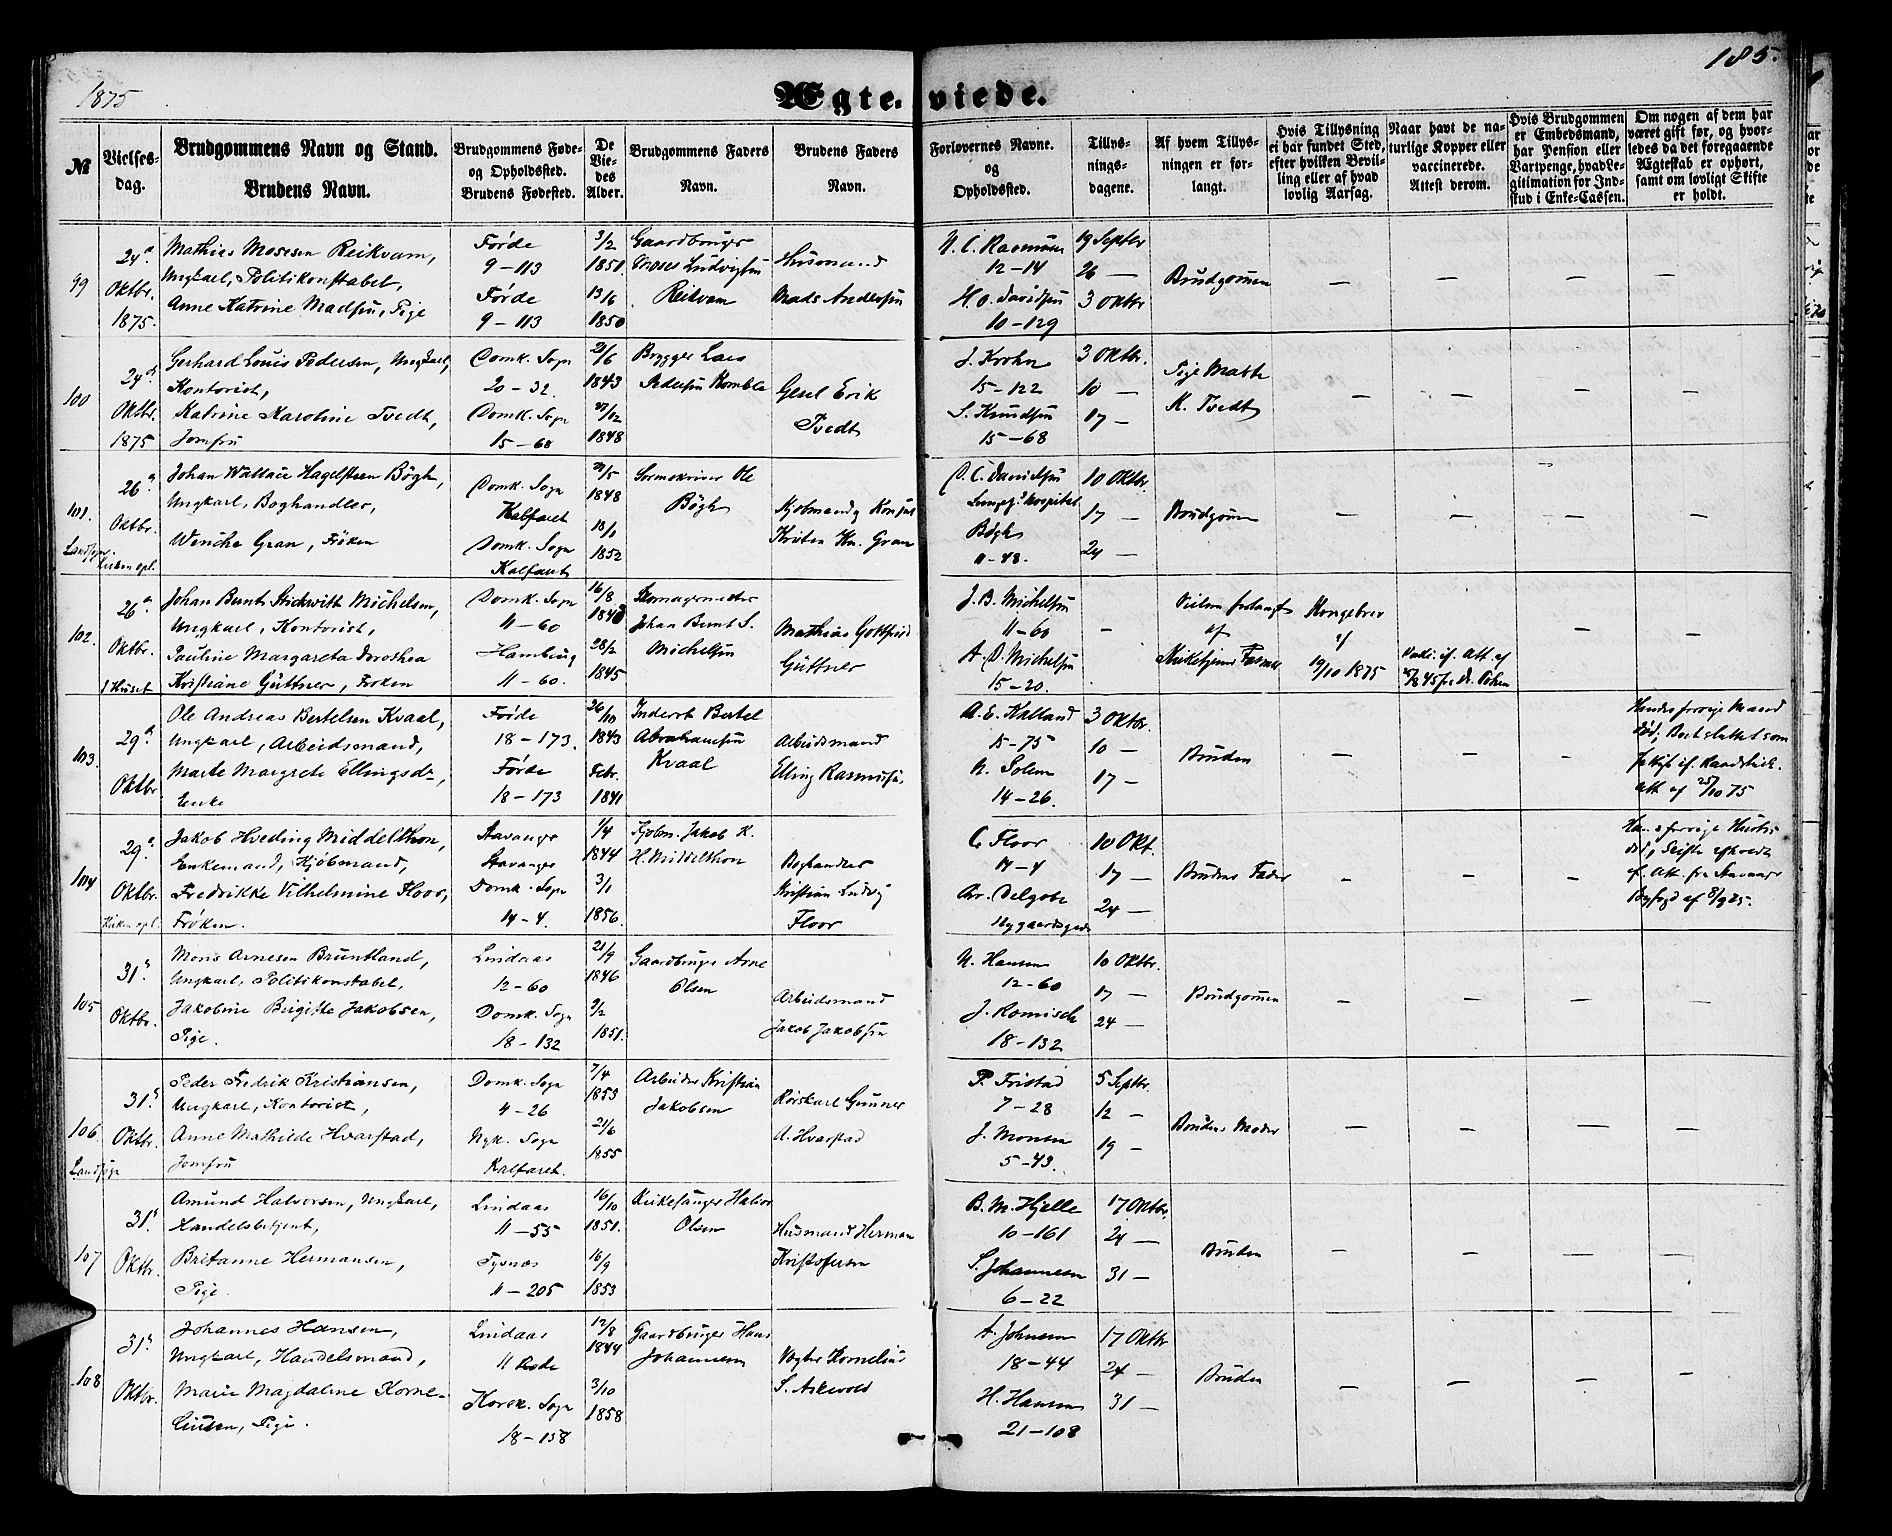 1875
185.
Ægteviede.
№
Vielses-
dag.
Brudgommens Navn og Stand.
Brudens Navn.
Brudgommens Føde-
og Opholdssted.
Brudens Fødested.
De
Vie-
des
Alder.
Brudgommens Faders
Navn.
Brudens Faders
Navn.
Forlovernes Navne.
og
Opholdssted.
Tillys-
nings-
dagene.
Af hvem Tillys-
ningen er for-
langt.
Hvis Tillysning
ei har fundet Sted,
efter hvilken Bevil-
ling eller af hvad
lovlig Aarsag.
Naar havt de na-
turlige Kopper eller
vaccinerede.
Attest derom.
Hvis Brudgommen
er Embedsmand,
har Pension eller
Vartpenge, hvad Le-
gitimation for Ind-
skud i Enke-Cassen.
Om nogen af dem har
været gift før, og hvor-
ledes da det foregaaende
Ægteskab er ophørt,
samt om lovligt Skifte
er holdt.
99
24de
Oktbr.
1875.
Mathias Mosesen Reikvam,
Ungkarl, Politikonstabel,
Anne Katrine Madsen, Pige
Førde
9-113
Førde
9-113
3/2
1851.
13/6
1850
Gaardbruger
Moses Ludvigsen
Reikvam
Husmand
Mads Andersen
N. C. Rasmussen
12-14
H. O. Davidsen
10-129
19 Septbr
26 —
3 Oktbr
Brudgommen
— — — —
100
24de
Oktbr.
1875
Gerhard Louis Pedersen, Ungkarl,
Kontorist,
Katrine Karoline Tvedt,
Jomfru
Domk. Sogn
20-32.
Domk. Sogn
15-68
21/6
1843
27/12
1848
Brygger Lars
Pedersen
Gesel Erik
Tvedt
J. Krohn
15-122
S. Knudsen
15-68
3 Oktbr.
10 —
17 —
Pige
K. Tvedt
— — — —
101.
26de
Oktbr.
Landsogn.
Kirken opl.
Johan Wallace Hagelsteen Bögh,
Ungkarl, Boghandler,
Wenche Gran, Frøken
Domk. Sogn
Kalfaret
Domk. Sogn
Kalfaret
1848
18/1
1852
Sorenskriver Ole
Bögh
Kjøbmand og Konsul
Kristen Kn. Gran
D. C. Davidsen
Lungeg. hospital
Bögh
11-48.
10 Oktbr.
17 —
24 —
Brudgommen
— — — —
102.
26de
Oktbr.
I Huset
Johan Bernt Stickwitt Michelsen,
Ungkarl, Kontorist,
Pauline Margareta Dorothea
Kristiane Güttner, Frøken
Domk. Sogn
11-60
Hamburg
11-60.
16/8
28/2
1845
Skomagermester
Johan Bernt S.
Michelsen
Mathias Gottfried
Güttner
J. B. Michelsen
11-60
A. D. Michelsen
15-20.
—
Vielsen forlangt
af
Kongebrev
af
19/10 1875
— —
103.
29de
Oktbr
Ole Andreas Bertelsen Kvaal,
Ungkarl, Arbeidsmand,
Marte Margrete Ellingsdr,
Enke
Førde
18-173.
Førde
18-173
26/10
1843
Febr.
1841
Inderst Bertel
Abrahamsen
Kvaal
Arbeidsmand
Elling Rasmussen
A. E. Kalland
15-75
N. Solem
14-26.
3 Oktbr.
10 —
17 —
Bruden
— — —
Hendes forrige Mand
død;
att. af 25/10 75
104
29de
Oktbr.
Kirken opl.
Jakob Hveding Middelthon,
Enkemand, Kjøbmand,
Fredrikke Vilhelmine Floor,
Frøken.
Stavanger
Stavanger
Domk. Sogn
14-4.
1/4
1844
3/1
1856.
Kjøbm. Jakob K.
H. Middelthon
Boghandler
Kristian Ludvig
Floor
C. Floor
14-4
Chr. Delgobe
Nygaardsgade
10 Okt.
17 —
24 —
Brudens Fader
— — —
Hans forrige Hustru
død, Skifte afholdt
if. Att. fra Stavanger
Byfogd af 8/9 75.
105
31te
Oktbr.
Mons Arnesen Bruntland,
Ungkarl, Politikonstabel,
Jakobine Birgitte Jakobsen,
Pige.
Lindaas
12-60
Domk. Sogn
18-132
21/9
1846
9/2
1851.
Gaardbruger Arne
Olsen
Arbeidsmand
Jakob Jakobsen
N. Hansen
12-60
J. Romisch
18-132
10 Oktbr.
17 —
24 —
Brudgommen
— — — —
106.
31te
Oktbr.
Landsogn
Peder Fredrik Kristiansen,
Ungkarl, Kontorist,
Anne Mathilde Hvarstad,
Jomfru
Domk. Sogn
4-26
Nyk. Sogn
Kalfaret.
7/4
1853
21/6
1855
Arbeider Kristian
Jakobsen
Røiskarl Gunner
A. Hvarstad
P. Fristad
7-28
J. Monsen
5-43.
5 Septbr.
12 —
19 —
Brudens Moder
— — — —
107
31te
Oktbr.
Amund Halvorsen, Ungkarl,
Handelsbetjent,
Britanne Hermansen,
Pige.
Lindaas
11-55
Tysnæs
11-205
16/10
1851.
16/9
1853
Kirkesanger Halvor
Olsen
Husmand Herman
Kristofersen
B. M. Hjelle
10-161
S. Johannesen
6-22
17 Oktbr.
24 —
31 —
Bruden
— — — —
108
31te
Oktbr.
Johannes Hansen,
Ungkarl, Handelsmand,
Marie Magdalene Korne-
liusen, Pige.
Lindaas
11 Rode
Korsk. Sogn
18-158
12/8
1844
3/10
1858
Gaardbruger Hans
Johannesen
Vogter Kornelius
S. Askevold
A. Johnsen
18-44
H. Hansen
21-108
17 Oktbr
24 —
31 —
Bruden
— — — —